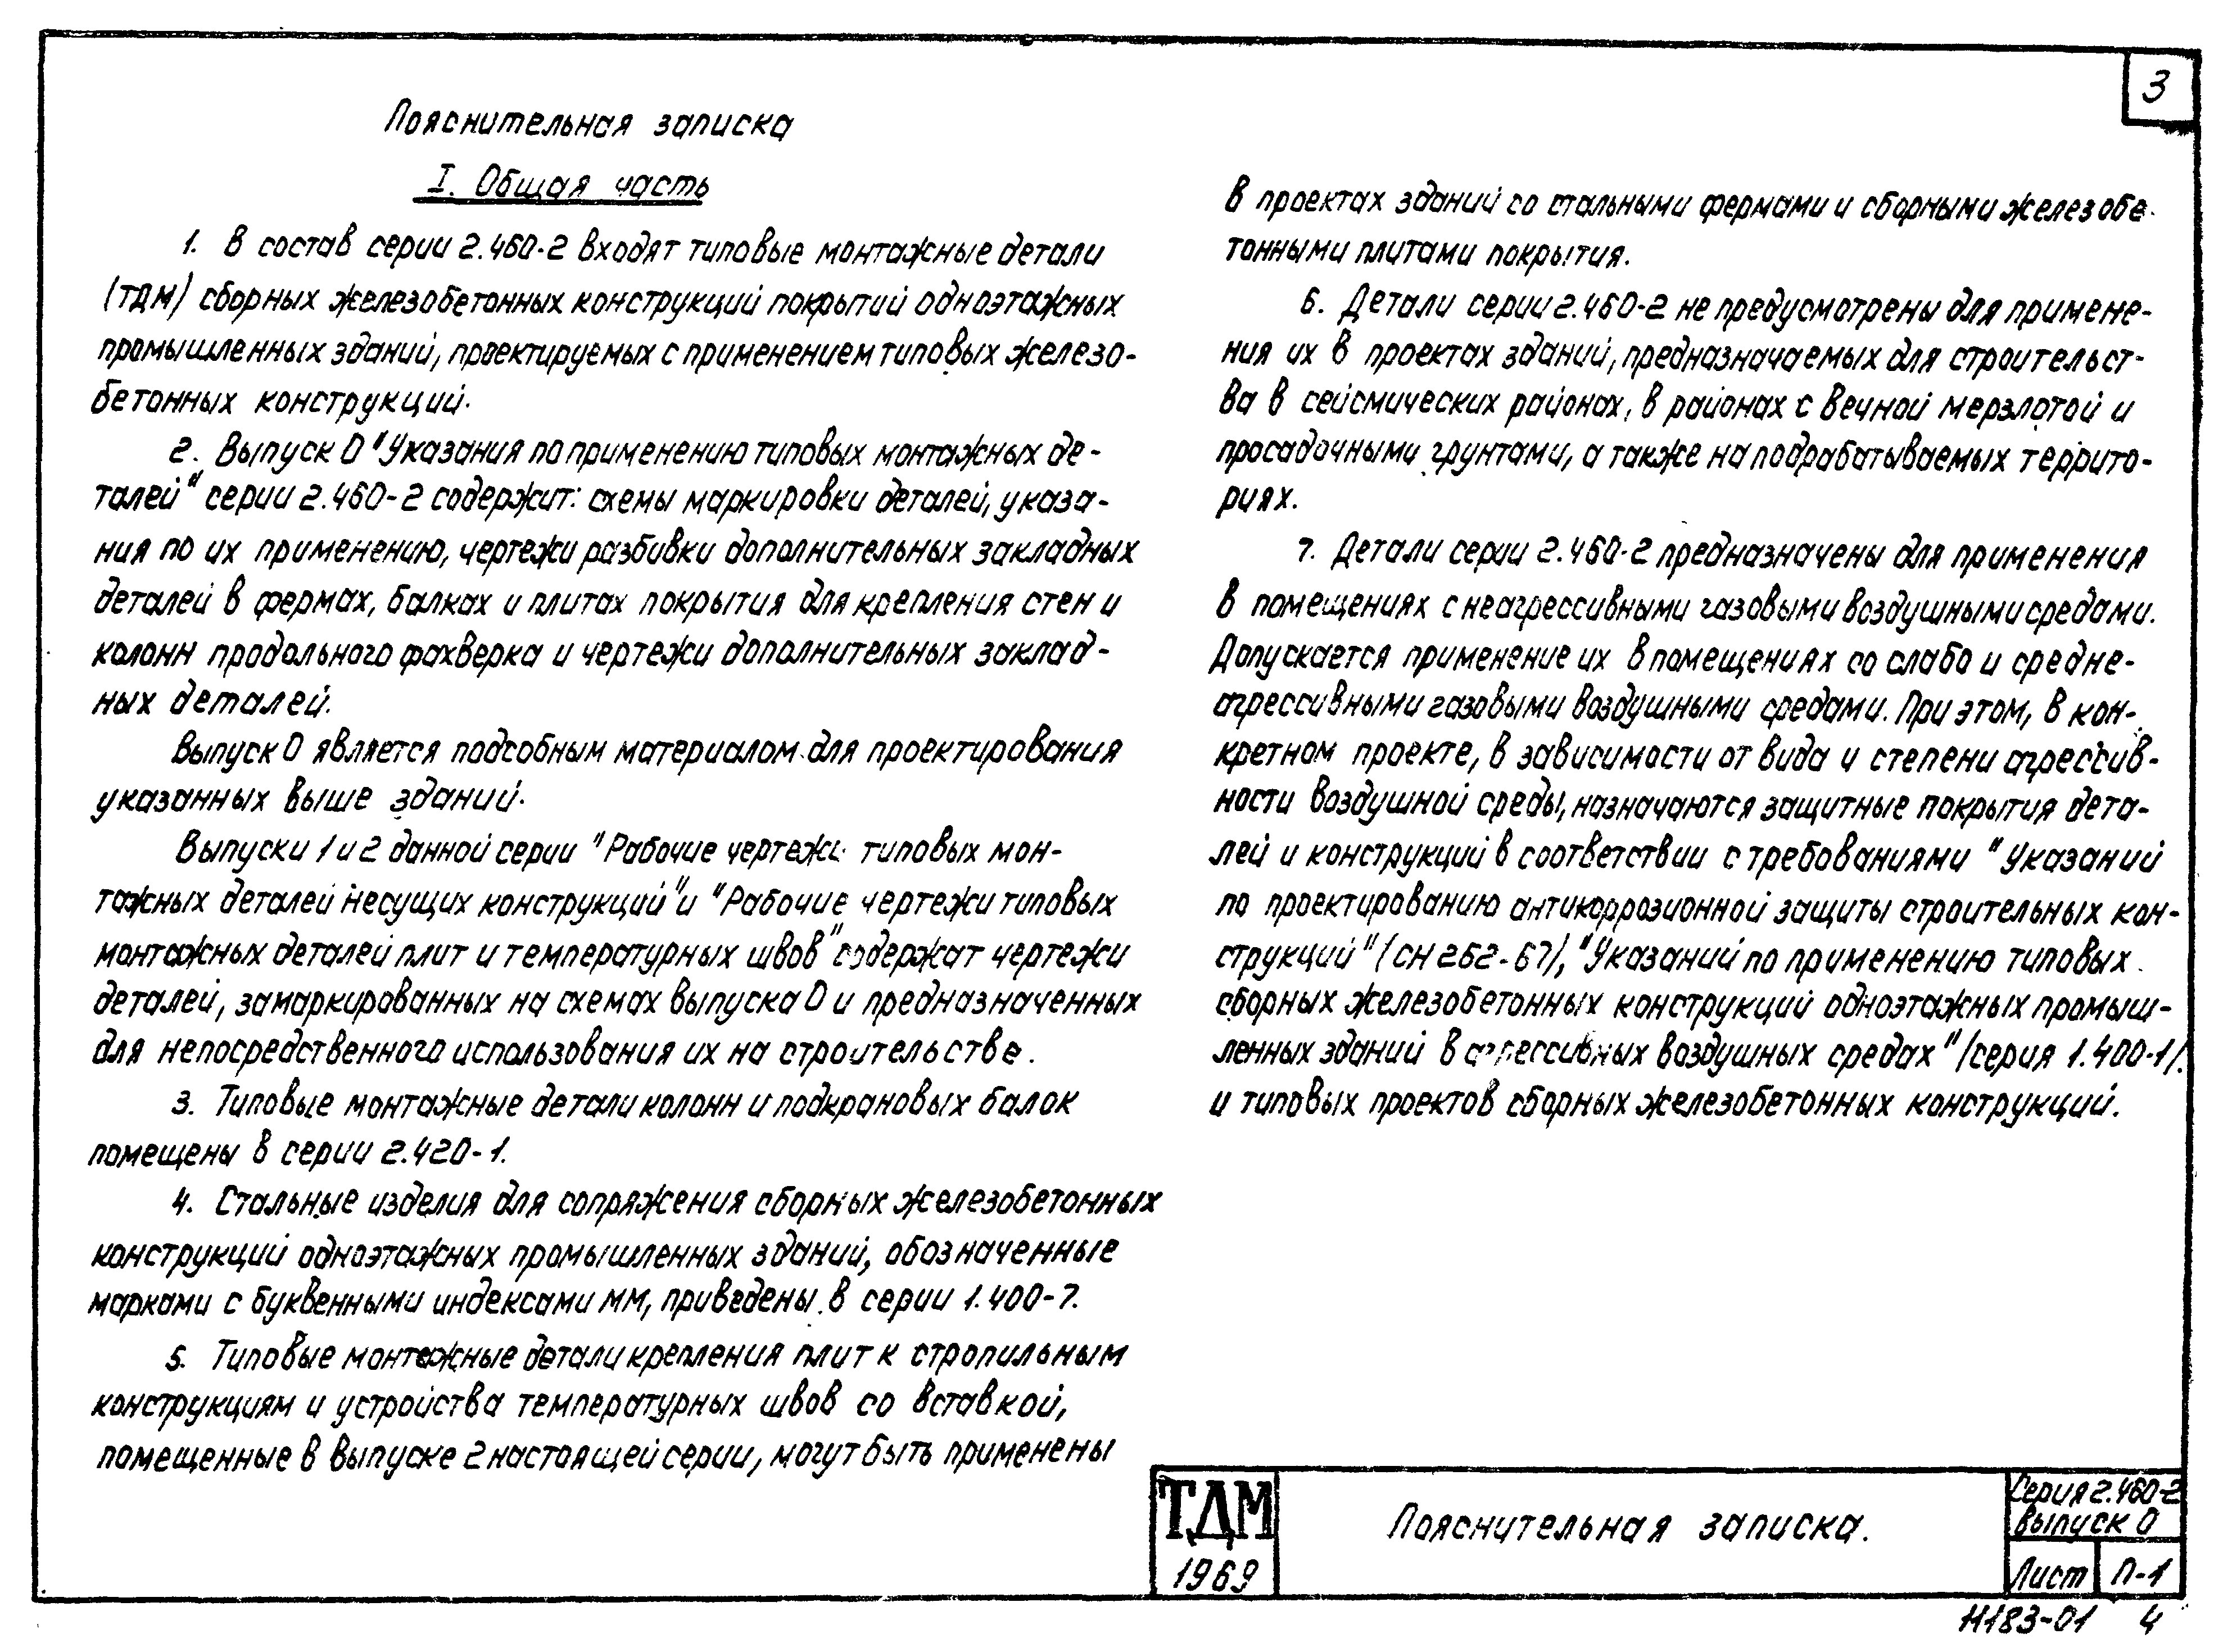 3
Пояснительная записка
I. Общая часть
1. В состав серии 2.460-2 входят типовые монтажные детали
(ТДМ) сборных железобетонных конструкций покрытий одноэтажных
промышленных зданий, проектируемых с применением типовых железо-
бетонных конструкций.
2. Выпуск 0 "Указания по применению типовых монтажных де-
талей" серии 2.460-2 содержит: схемы маркировки деталей, указа-
ния по их применению, чертежи разбивки дополнительных закладных
деталей в фермах, балках и плитах покрытия для крепления стен и
колонн продольного фахверка и чертежи дополнительных заклад-
ных деталей.
Выпуск 0 является подсобным материалом для проектирования
указанных выше зданий.
Выпуски 1 и 2 данной серии "Рабочие чертежи типовых мон-
тажных деталей несущих конструкций" и "Рабочие чертежи типовых
монтажных деталей плит и температурных швов" содержат чертежи
деталей, замаркированных на схемах выпуска 0 и предназначенных
для непосредственного использования их на строительстве.
3. Типовые монтажные детали колонн и подкрановых балок
помещены в серии 2.420-1.
4. Стальные изделия для сопряжения сборных железобетонных
конструкций одноэтажных промышленных зданий, обозначенные
марками с буквенными индексами ММ, приведены в серии 1.400-7.
5. Типовые монтажные детали крепления плит к стропильным
конструкциям и устройства температурных швов со вставкой,
помещенные в выпуске 2 настоящей серии, могут быть применены
в проектах зданий со стальными фермами и сборными железобе-
тонными плитами покрытия.
6. Детали серии 2.460-2 не предусмотрены для примене-
ния их в проектах зданий, предназначаемых для строительст-
ва в сейсмических районах, в районах с вечной мерзлотой и
просадочными грунтами, а также на подрабатываемых террито-
риях.
7. Детали серии 2.460-2 предназначены для применения
в помещениях с неагрессивными газовыми воздушными средами.
Допускается применение их в помещениях со слабо и средне-
агрессивными газовыми воздушными средами. При этом, в кон-
кретном проекте, в зависимости от вида и степени агрессив-
ности воздушной среды, назначаются защитные покрытия дета-
лей и конструкций в соответствии с требованиями "Указаний
по проектированию антикоррозионной защиты строительных кон-
струкций" (СН 262-67), "Указаний по применению типовых
сборных железобетонных конструкций одноэтажных промыш-
ленных зданий в агрессивных воздушных средах" (серия 1.400-1).
и типовых проектов сборных железобетонных конструкций.
ТДМ
1969
Пояснительная записка.
Серия 2.460-2
Выпуск 0
Лист П-1
Н183-01 4